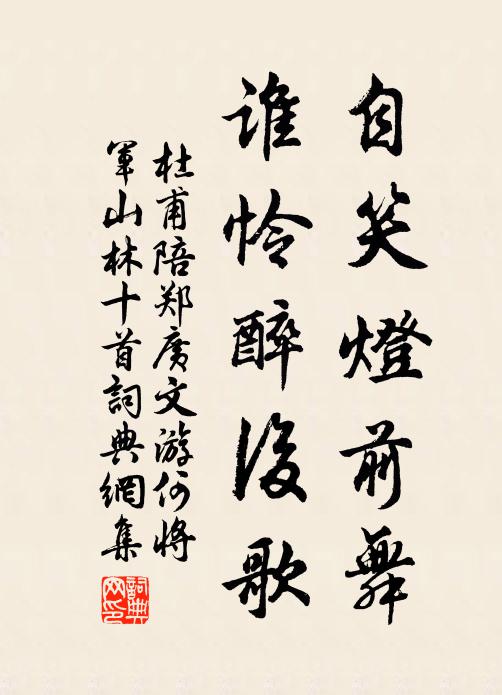 自笑燈前舞
誰怜醉後歌
杜甫陪郑廣文游何將
軍山林十首詞典網集
詞典網印